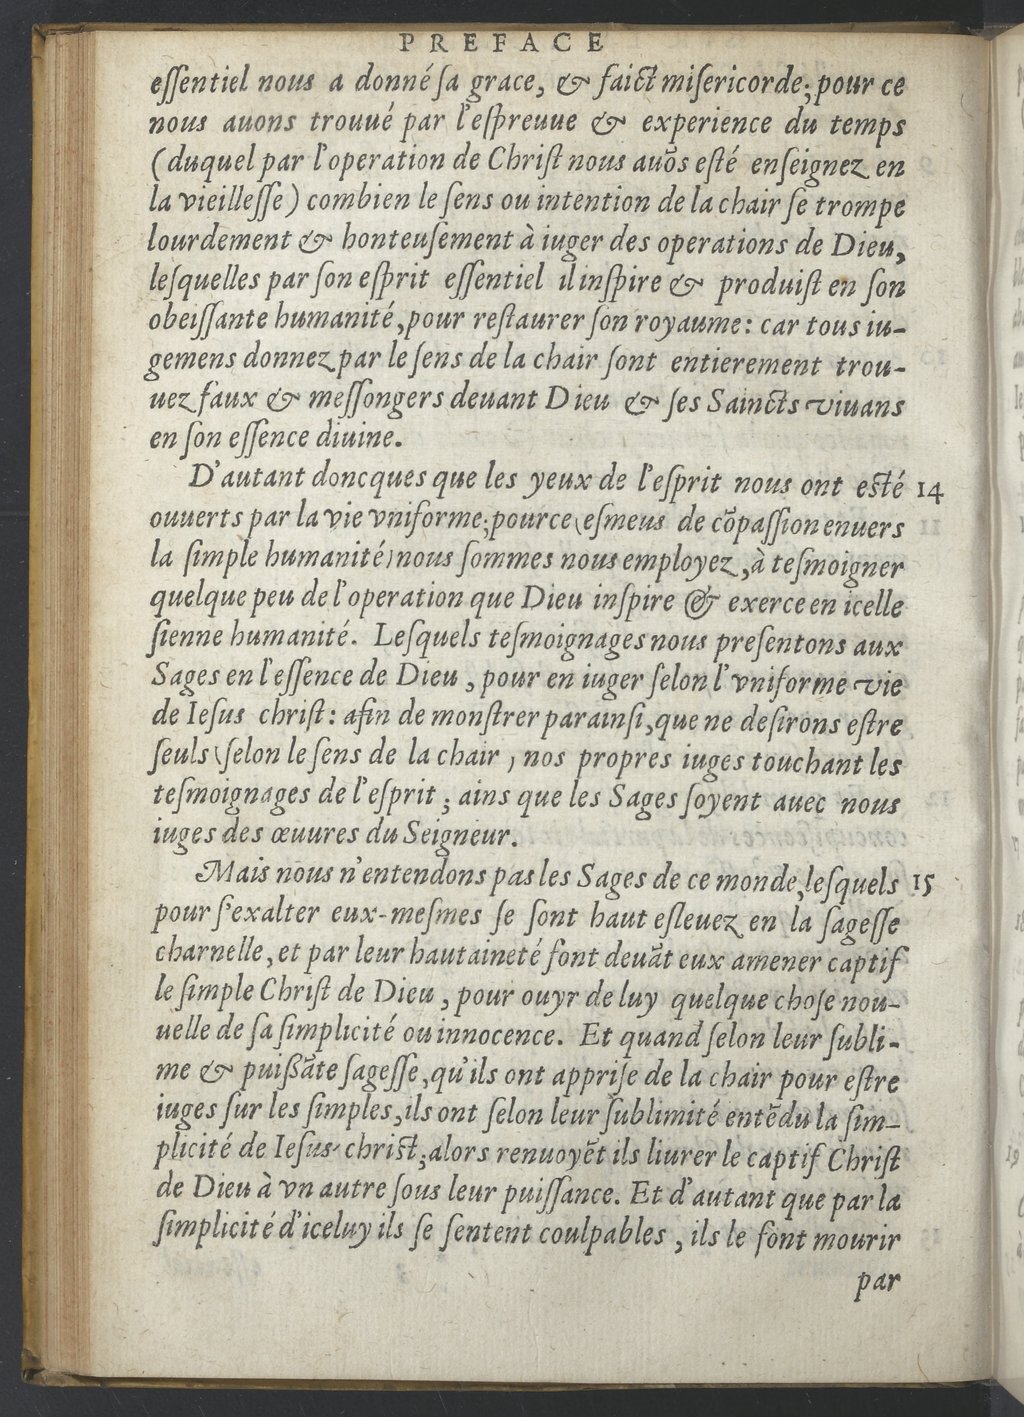 PREFACE
eſſentiel nous a donné ſa grace, & faict miſericorde; pour ce
nous auons trouué par l'eſpreuue & experience du temps
(duquel par l'operation de Chriſt nous auõs eſté enſeignez en
la vieilleſſe) combien le ſens ou intention de la chair ſe trompe
lourdement & honteuſement à iuger des operations de Dieu,
leſquelles par ſon eſprit eſſentiel il inſpire & produiſt en ſon
obeiſſante humanité, pour reſtaurer ſon royaume: car tous iu-
gemens donnez par le ſens de la chair ſont entierement trou-
uez faux & meſſongers deuant Dieu & ſes Saincts viuans
en ſon eſſence diuine.
D'autant doncques que les yeux de l'eſprit nous ont eſté 14
ouuerts par la vie vniforme; pource (eſmeus de cõpaſſion enuers
la ſimple humanité) nous ſommes nous employez, à teſmoigner
quelque peu de l'operation que Dieu inſpire & exerce en icelle
ſienne humanité. Leſquels teſmoignages nous preſentons aux
Sages en l'eſſence de Dieu, pour en iuger ſelon l'vniforme vie
de Ieſus chriſt: afin de monſtrer par ainſi, que ne deſirons eſtre
ſeuls (ſelon le ſens de la chair) nos propres iuges touchant les
teſmoignages de l'eſprit; ains que les Sages ſoyent auec nous
iuges des œuures du Seigneur.
Mais nous n'entendons pas les Sages de ce monde, leſquels 15
pour ſ'exalter eux-meſmes ſe ſont haut eſleuez en la ſageſſe
charnelle, et par leur hautaineté font deuãt eux amener captif
le ſimple Chriſt de Dieu, pour ouyr de luy quelque choſe nou-
uelle de ſa ſimplicité ou innocence. Et quand ſelon leur ſubli-
me & puißãte ſageſſe, qu'ils ont appriſe de la chair pour eſtre
iuges ſur les ſimples, ils ont ſelon leur ſublimité entẽdu la ſim-
plicité de Ieſus-chriſt; alors renuoyẽt ils liurer le captif Chriſt
de Dieu à vn autre ſous leur puiſſance. Et d'autant que par la
ſimplicité d'iceluy ils ſe ſentent coulpables, ils le font mourir
par